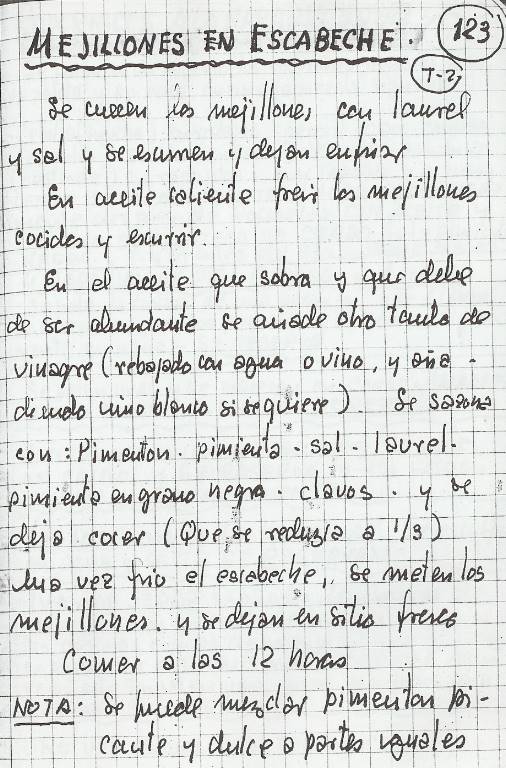 MEJILLONES EN ESCABECHE. 123
T-2
Se cuecen los mejillones con laurel
y sal y se escurren y dejan enfriar
En aceite caliente freir los mejillones
cocidos y escurrir.
En el aceite que sobra y que debe
de ser abundante se añade otro tanto de
vinagre (rebajado con agua o vino, y aña-
diendo vino blanco si se quiere). Se sazona
con: Pimenton. pimienta. sal. laurel.
pimienta en grano negra. clavos. y se
deja cocer (Que se reduzca a 1/3)
Una vez frio el escabeche, se meten los
mejillones. y se dejan en sitio fresco
Comer a las 12 horas
NOTA: Se puede mezclar pimenton pi-
cante y dulce a partes iguales